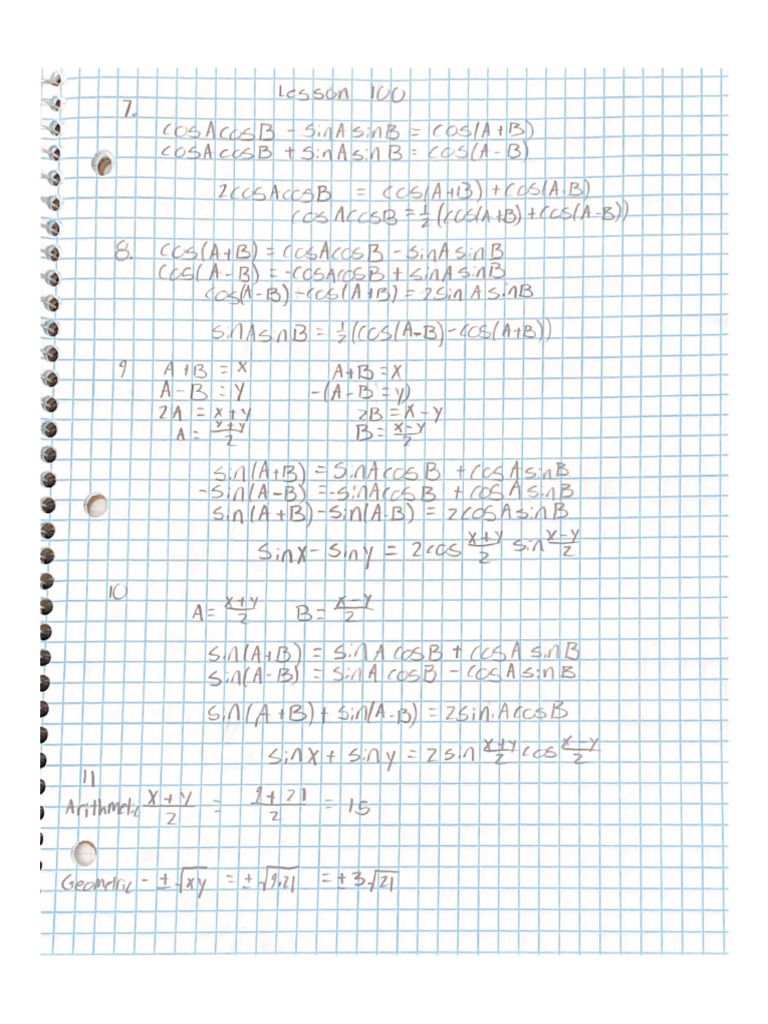 Lesson 100
7.
cosAcosB - sinAsinB = cos(A+B)
cosAcosB + sinAsinB = cos(A-B)
2cosAcosB = cos(A+B) + cos(A-B)
cosAcosB = 1/2 (cos(A+B) + cos(A-B))
8. cos(A+B) = cosAcosB - sinAsinB
cos(A-B) = -cosAcosB + sinAsinB
cos(A-B) - cos(A+B) = 2sinAsinB
sinAsinB = 1/2 (cos(A-B) - cos(A+B))
9 A+B = x A+B = x
A-B = y -(A-B = y)
2A = x+y 2B = x-y
A = (x+y)/2 B = (x-y)/2
sin(A+B) = sinAcosB + cosAsinB
-sin(A-B) = -sinAcosB + cosAsinB
sin(A+B) - sin(A-B) = 2cosAsinB
sinx - siny = 2cos (x+y)/2 sin (x-y)/2
10
A = (x+y)/2 B = (x-y)/2
sin(A+B) = sinAcosB + cosAsinB
sin(A-B) = sinAcosB - cosAsinB
sin(A+B) + sin(A-B) = 2sinAcosB
sinx + siny = 2sin (x+y)/2 cos (x-y)/2
11
Arithmetic (x+y)/2 = (9+21)/2 = 15
Geometric - ±√xy = ±√9·21 = ±3√21